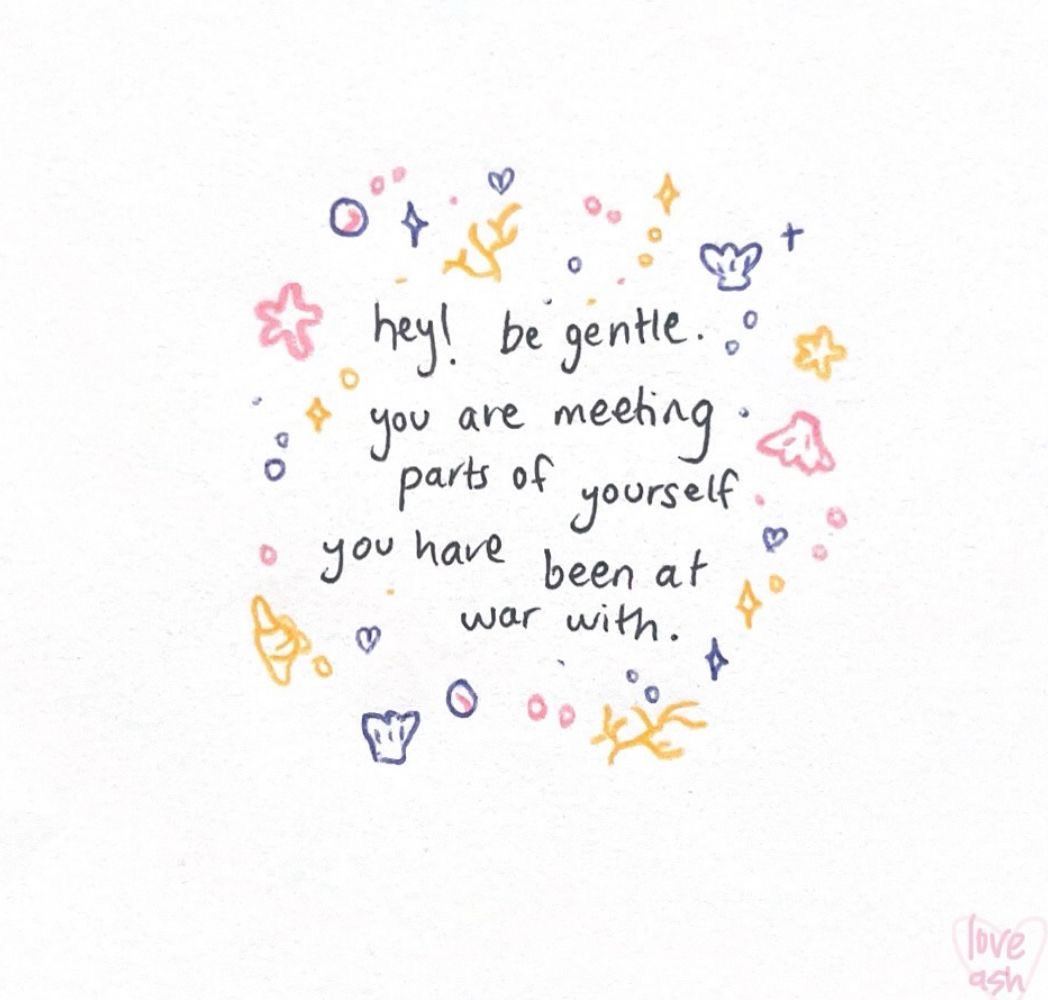 hey! be gentle.
you are meeting
parts of yourself
you have been at
war with.
love
ash